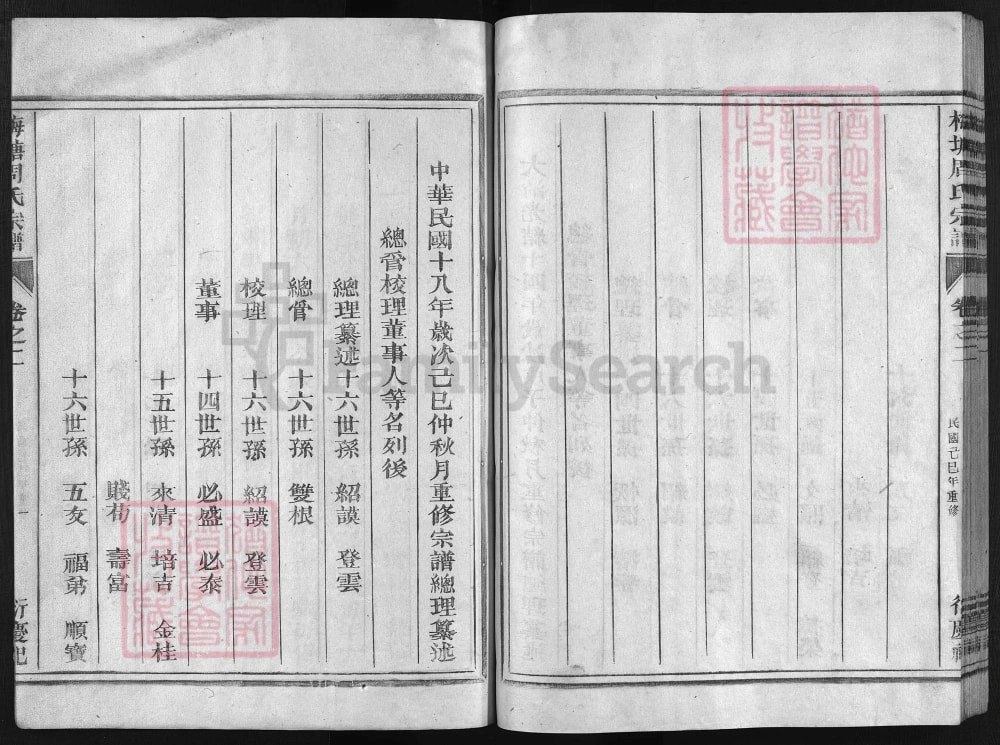 梅塘周氏宗譜
卷之二
民國己巳年重修
中華民國十八年歲次己巳仲秋月重修宗譜總理纂述
總管校理董事人等名列後
總理纂述十六世孫 紹謨 登雲
總管 十六世孫 雙根
校理 十六世孫 紹謨 登雲
董事 十四世孫 必盛 必泰
十五世孫 來清 培吉 金桂
賤苟 壽富
十六世孫 五友 福弟 順寶
梅塘周氏宗譜
卷之二
衍慶祀
FamilySearch